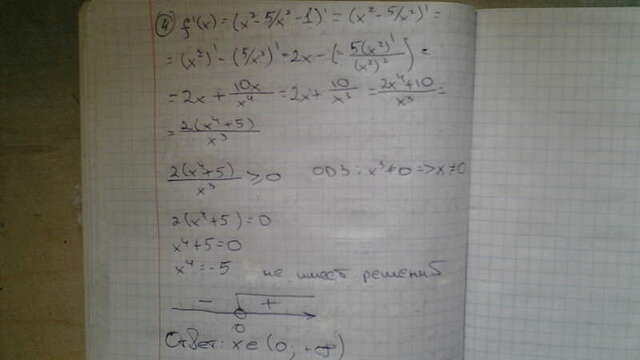 ④ f'(x) = (x² - 5/x² - 1)' = (x² - 5/x²)' =
= (x²)' - (5/x²)' = 2x - (- 5(x²)'/(x²)²) =
= 2x + 10x/x⁴ = 2x + 10/x³ = 2x⁴+10/x³ =
= 2(x⁴+5)/x³
2(x⁴+5)/x³ ≥ 0 ОДЗ: x³≠0 => x≠0
2(x⁴+5) = 0
x⁴+5 = 0
x⁴ = -5 не имеет решений
- +
0
Ответ: x ∈ (0; +∞)